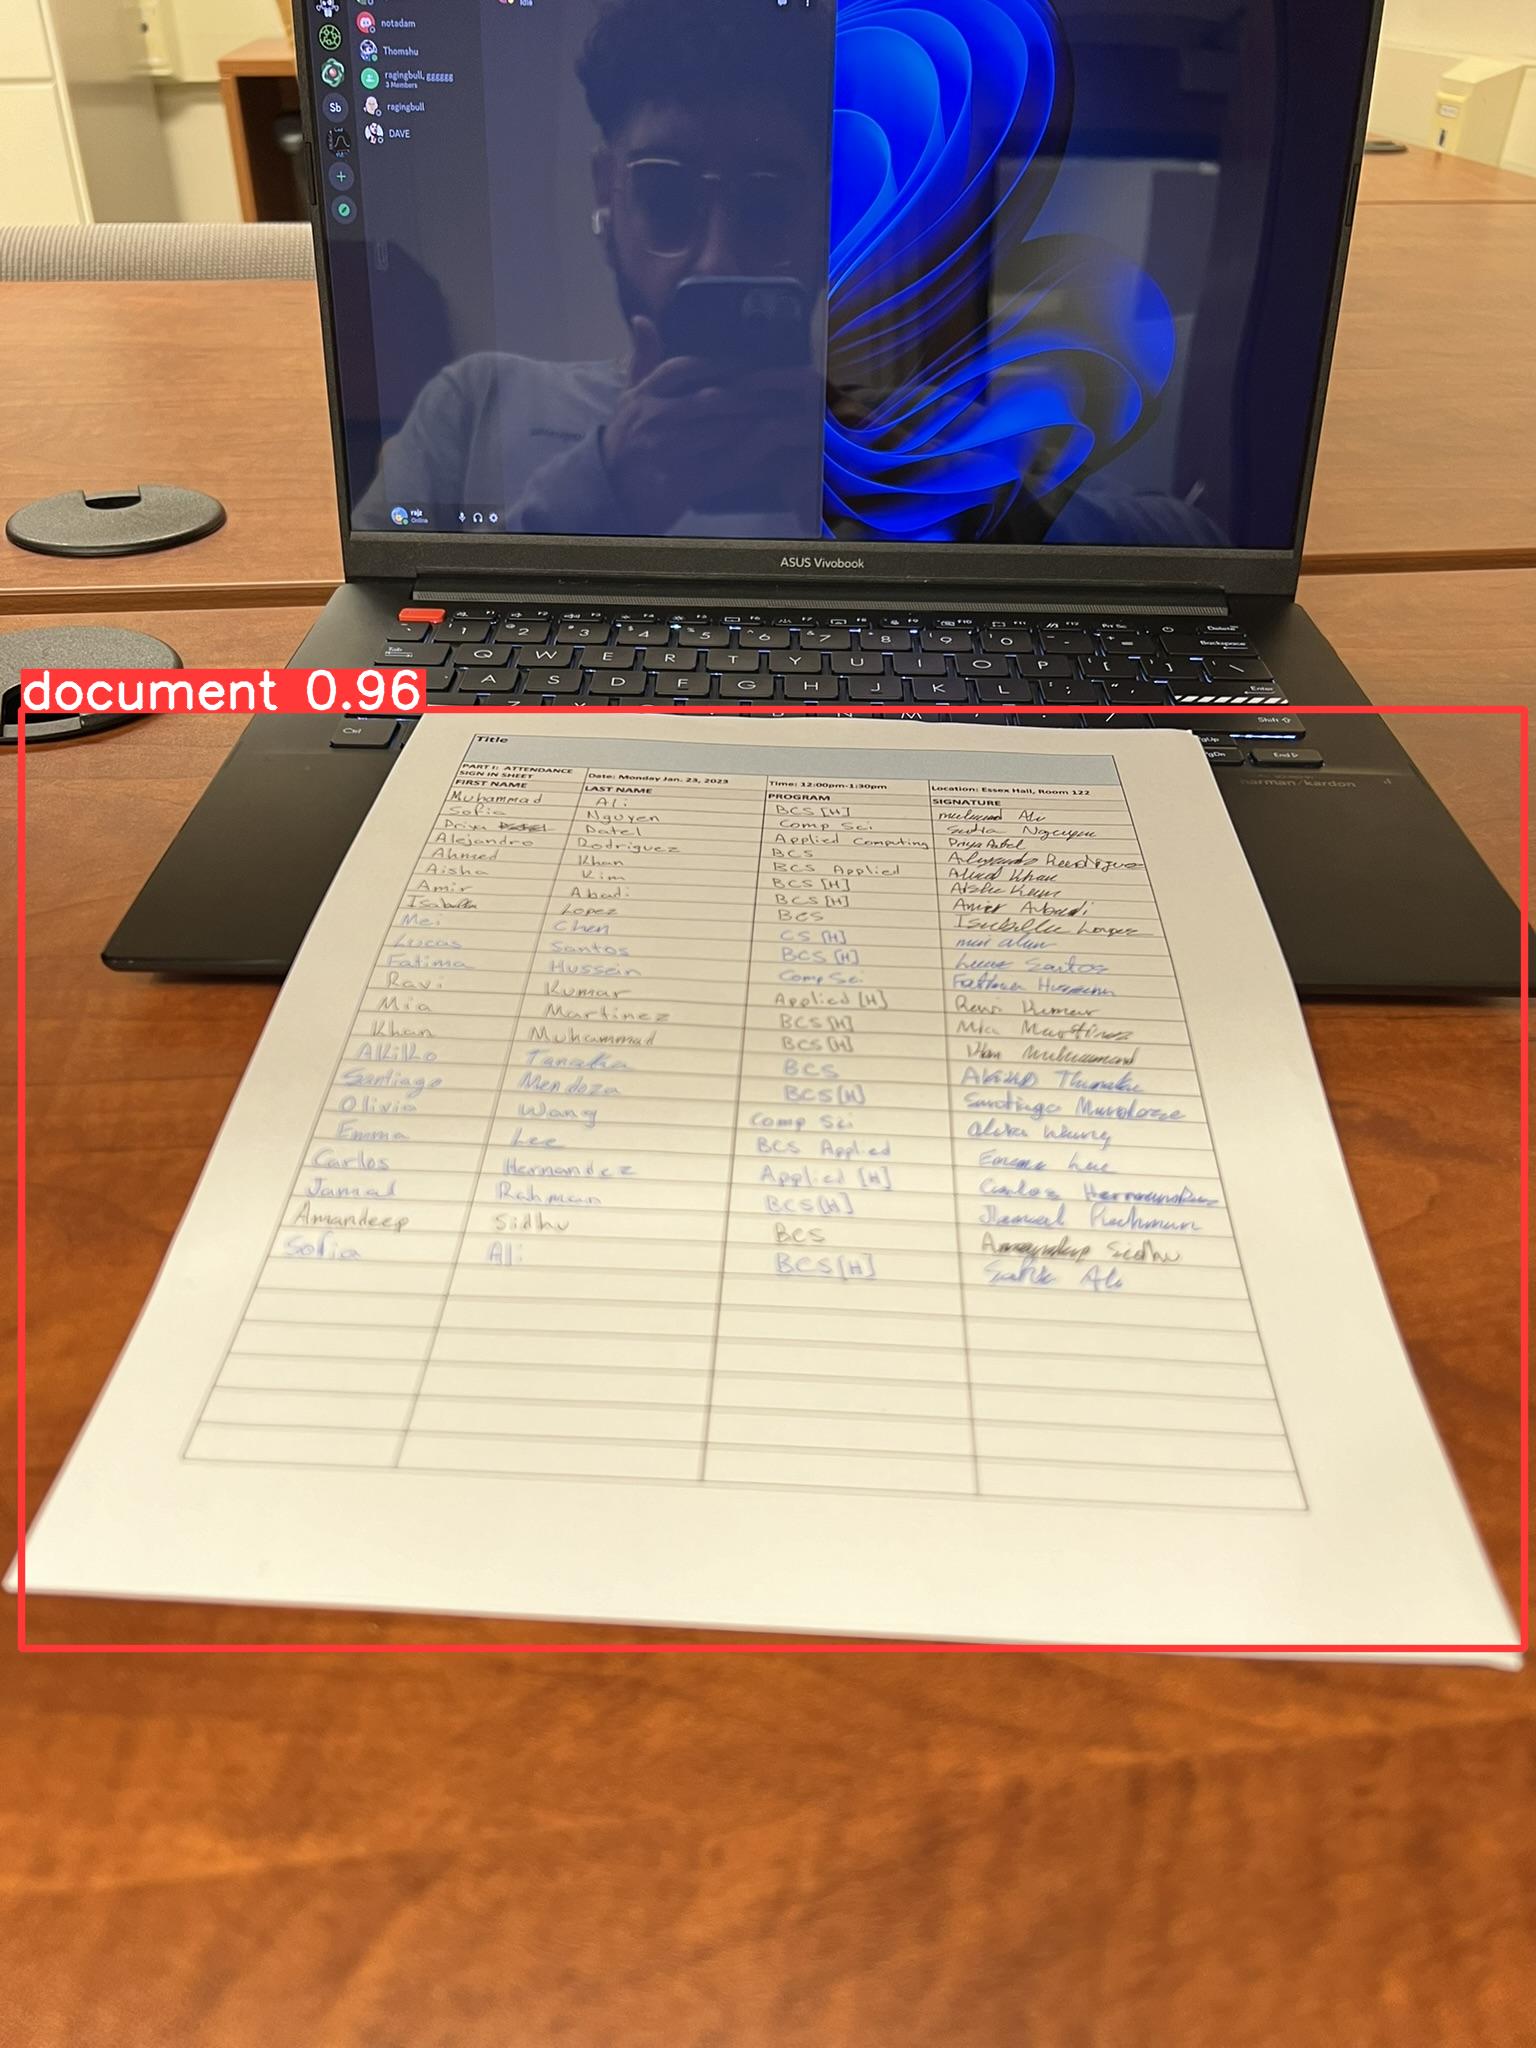 notadam
Thomshu
ragingbull, gggggg
3 Members
Sb
ragingbull
DAVE
rajz
Online
ASUS Vivobook
F1 F2 F3 F4 F5 F6 F7 F8 F9 F10 F11 F12 Prt Sc Delete
1 2 3 4 5 6 7 8 9 0 Backspace
Tab Q W E R T Y U I O P
A S D F G H J K L Enter
document 0.96
Shift
Ctrl PgUp
PgDn End
harman/kardon
Title
PART I: ATTENDANCE SIGN IN SHEET Date: Monday Jan. 23, 2023 Time: 12:00pm-1:30pm Location: Essex Hall, Room 122
FIRST NAME LAST NAME PROGRAM SIGNATURE
Muhammad Ali BCS [H] Ali
Sofia Nguyen Comp Sci Nguyen
Priya Patel Applied Computing Priya Patel
Alejandro Rodriguez BCS Alejandro Rodriguez
Ahmed Khan BCS Applied Ahmed Khan
Aisha Kim BCS [H] Aisha Kim
Amir Abadi BCS [H] Amir Abadi
Isabella Lopez BCS Isabella Lopez
Mei Chen CS [H] Mei Chen
Lucas Santos BCS [H] Lucas Santos
Fatima Hussein Comp Sci Fatima Hussein
Ravi Kumar Applied [H] Ravi Kumar
Mia Martinez BCS [H] Mia Martinez
Khan Muhammad BCS [H] Khan Muhammad
Akiko Tanaka BCS Akiko
Santiago Mendoza BCS [H] Santiago
Olivia Wang Comp Sci Olivia Wang
Emma Lee BCS Applied Emma Lee
Carlos Hernandez Applied [H] Carlos Hernandez
Jamal Rahman BCS [H] Jamal Rahman
Amandeep Sidhu BCS Amandeep Sidhu
Sofia Ali BCS [H] Sofia Ali